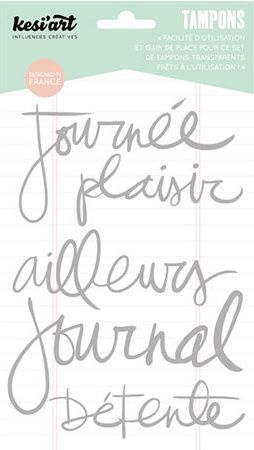 kesi'art
INFLUENCES CRÉATIVES
TAMPONS
« FACILITÉ D'UTILISATION
ET GAIN DE PLACE POUR CE SET
DE TAMPONS TRANSPARENTS
PRÊTS À L'UTILISATION ! »
DESIGNED IN
FRANCE
Journée
plaisir
ailleurs
Journal
Détente